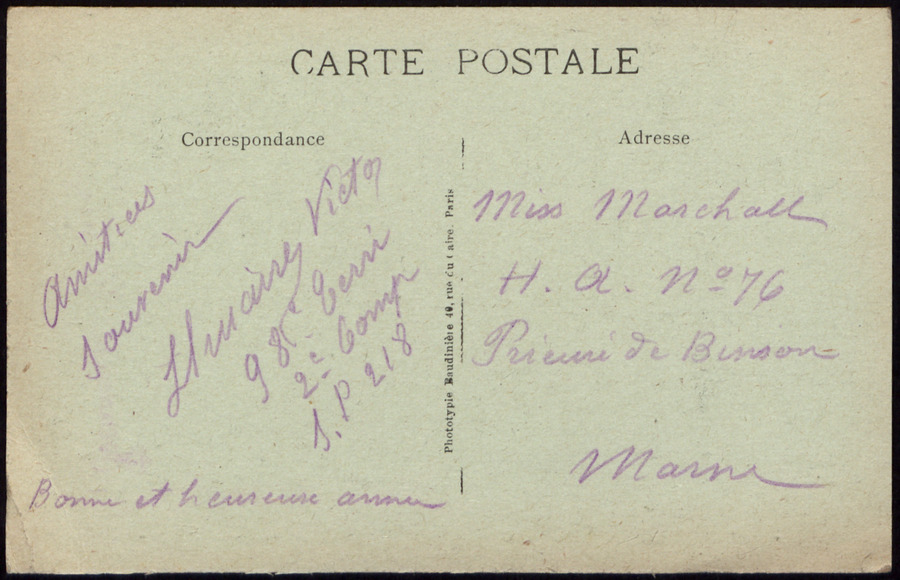 CARTE POSTALE
Correspondance
Amitiés
Souvenir
Victor
98e Terri
2e Comp
S.P. 218
Bonne et heureuse année
Phototypie Baudinière 40, rue du Caire. Paris
Adresse
Miss Marchall
H. A. No 76
Prieuré de Binson
Marne